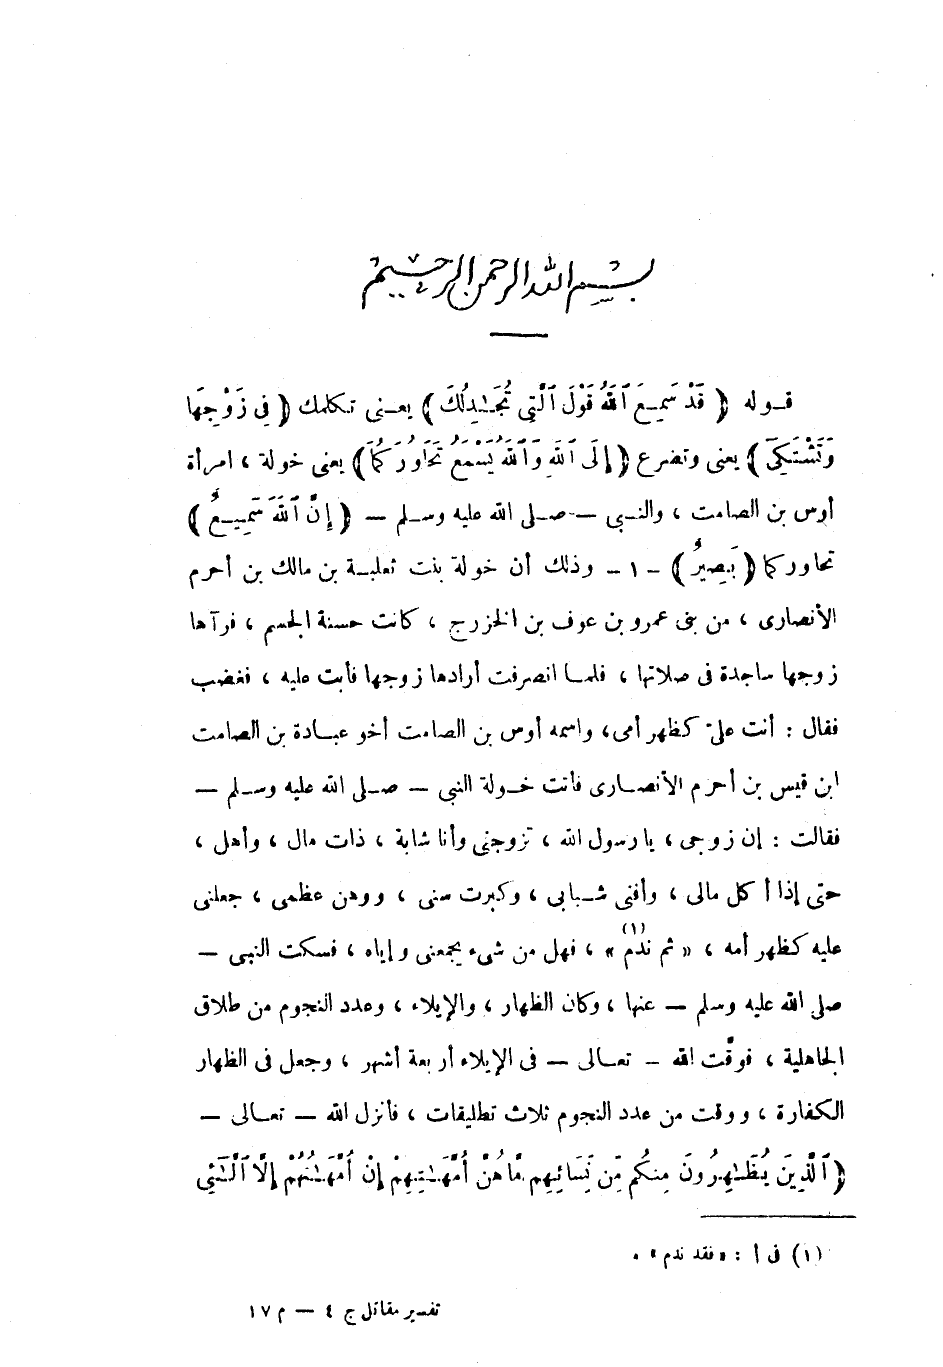 بسم الله الرحمن الرحيم
قـوله ﴿ قَدْ سَمِعَ ٱللَّهُ قَوْلَ ٱلَّتِي تُجَـٰدِلُكَ ﴾ يعـنى تـكلمك ﴿ فِي زَوْجِهَا
وَتَشْتَكِىٓ ﴾ يعنى وتضرع ﴿ إِلَى ٱللَّهِ وَٱللَّهُ يَسْمَعُ تَحَاوُرَكُمَآ ﴾ يعنى خولة ، امرأة
أوس بن الصامت ، والنـبى — صـلى الله عليه وسـلم — ﴿ إِنَّ ٱللَّهَ سَمِيـعٌ ﴾
تحاوركما ﴿ بَصِيرٌ ﴾ - ١ - وذلك أن خولة بنت ثعلبـة بن مالك بن أحرم
الأنصارى ، من بنى عمرو بن عوف بن الخزرج ، كانت حسنة الجسم ، فرآها
زوجها ساجدة فى صلاتها ، فلمـا انصرفت أرادها زوجها فأبت عليه ، فغضب
فقال : أنت علىّ كظهر أمى، واسمه أوس بن الصامت أخو عبـادة بن الصامت
ابن قيس بن أحرم الأنصـارى فأتت خـولة النبى — صـلى الله عليه وسـلم —
فقالت : إن زوجى ، يا رسول الله ، تزوجنى وأنا شابة ، ذات مال ، وأهل ،
حتى إذا أكل مالى ، وأفنى شـبابى ، وكبرت سنى ، ووهن عظمى ، جعلنى
عليه كظهر أمه ، « ثم ندم (١) » ، فهل من شىء يجمعنى وإياه ، فسكت النبى —
صلى الله عليه وسلم — عنها ، وكان الظهار ، والإيلاء ، وعدد النجوم من طلاق
الجاهلية ، فوقّت الله - تعـالى — فى الإيلاء أربعة أشهر ، وجعل فى الظهار
الكفارة ، ووقت من عدد النجوم ثلاث تطليقات ، فأنزل الله — تعـالى —
﴿ ٱلَّذِينَ يُظَـٰهِرُونَ مِنكُم مِّن نِّسَآئِهِم مَّا هُنَّ أُمَّهَـٰتِهِمْ إِنْ أُمَّهَـٰتُهُمْ إِلَّا ٱلَّـٰٓئِى
(١) فى أ : « فقد ندم » .
تفسير مقاتل ج ٤ — م ١٧